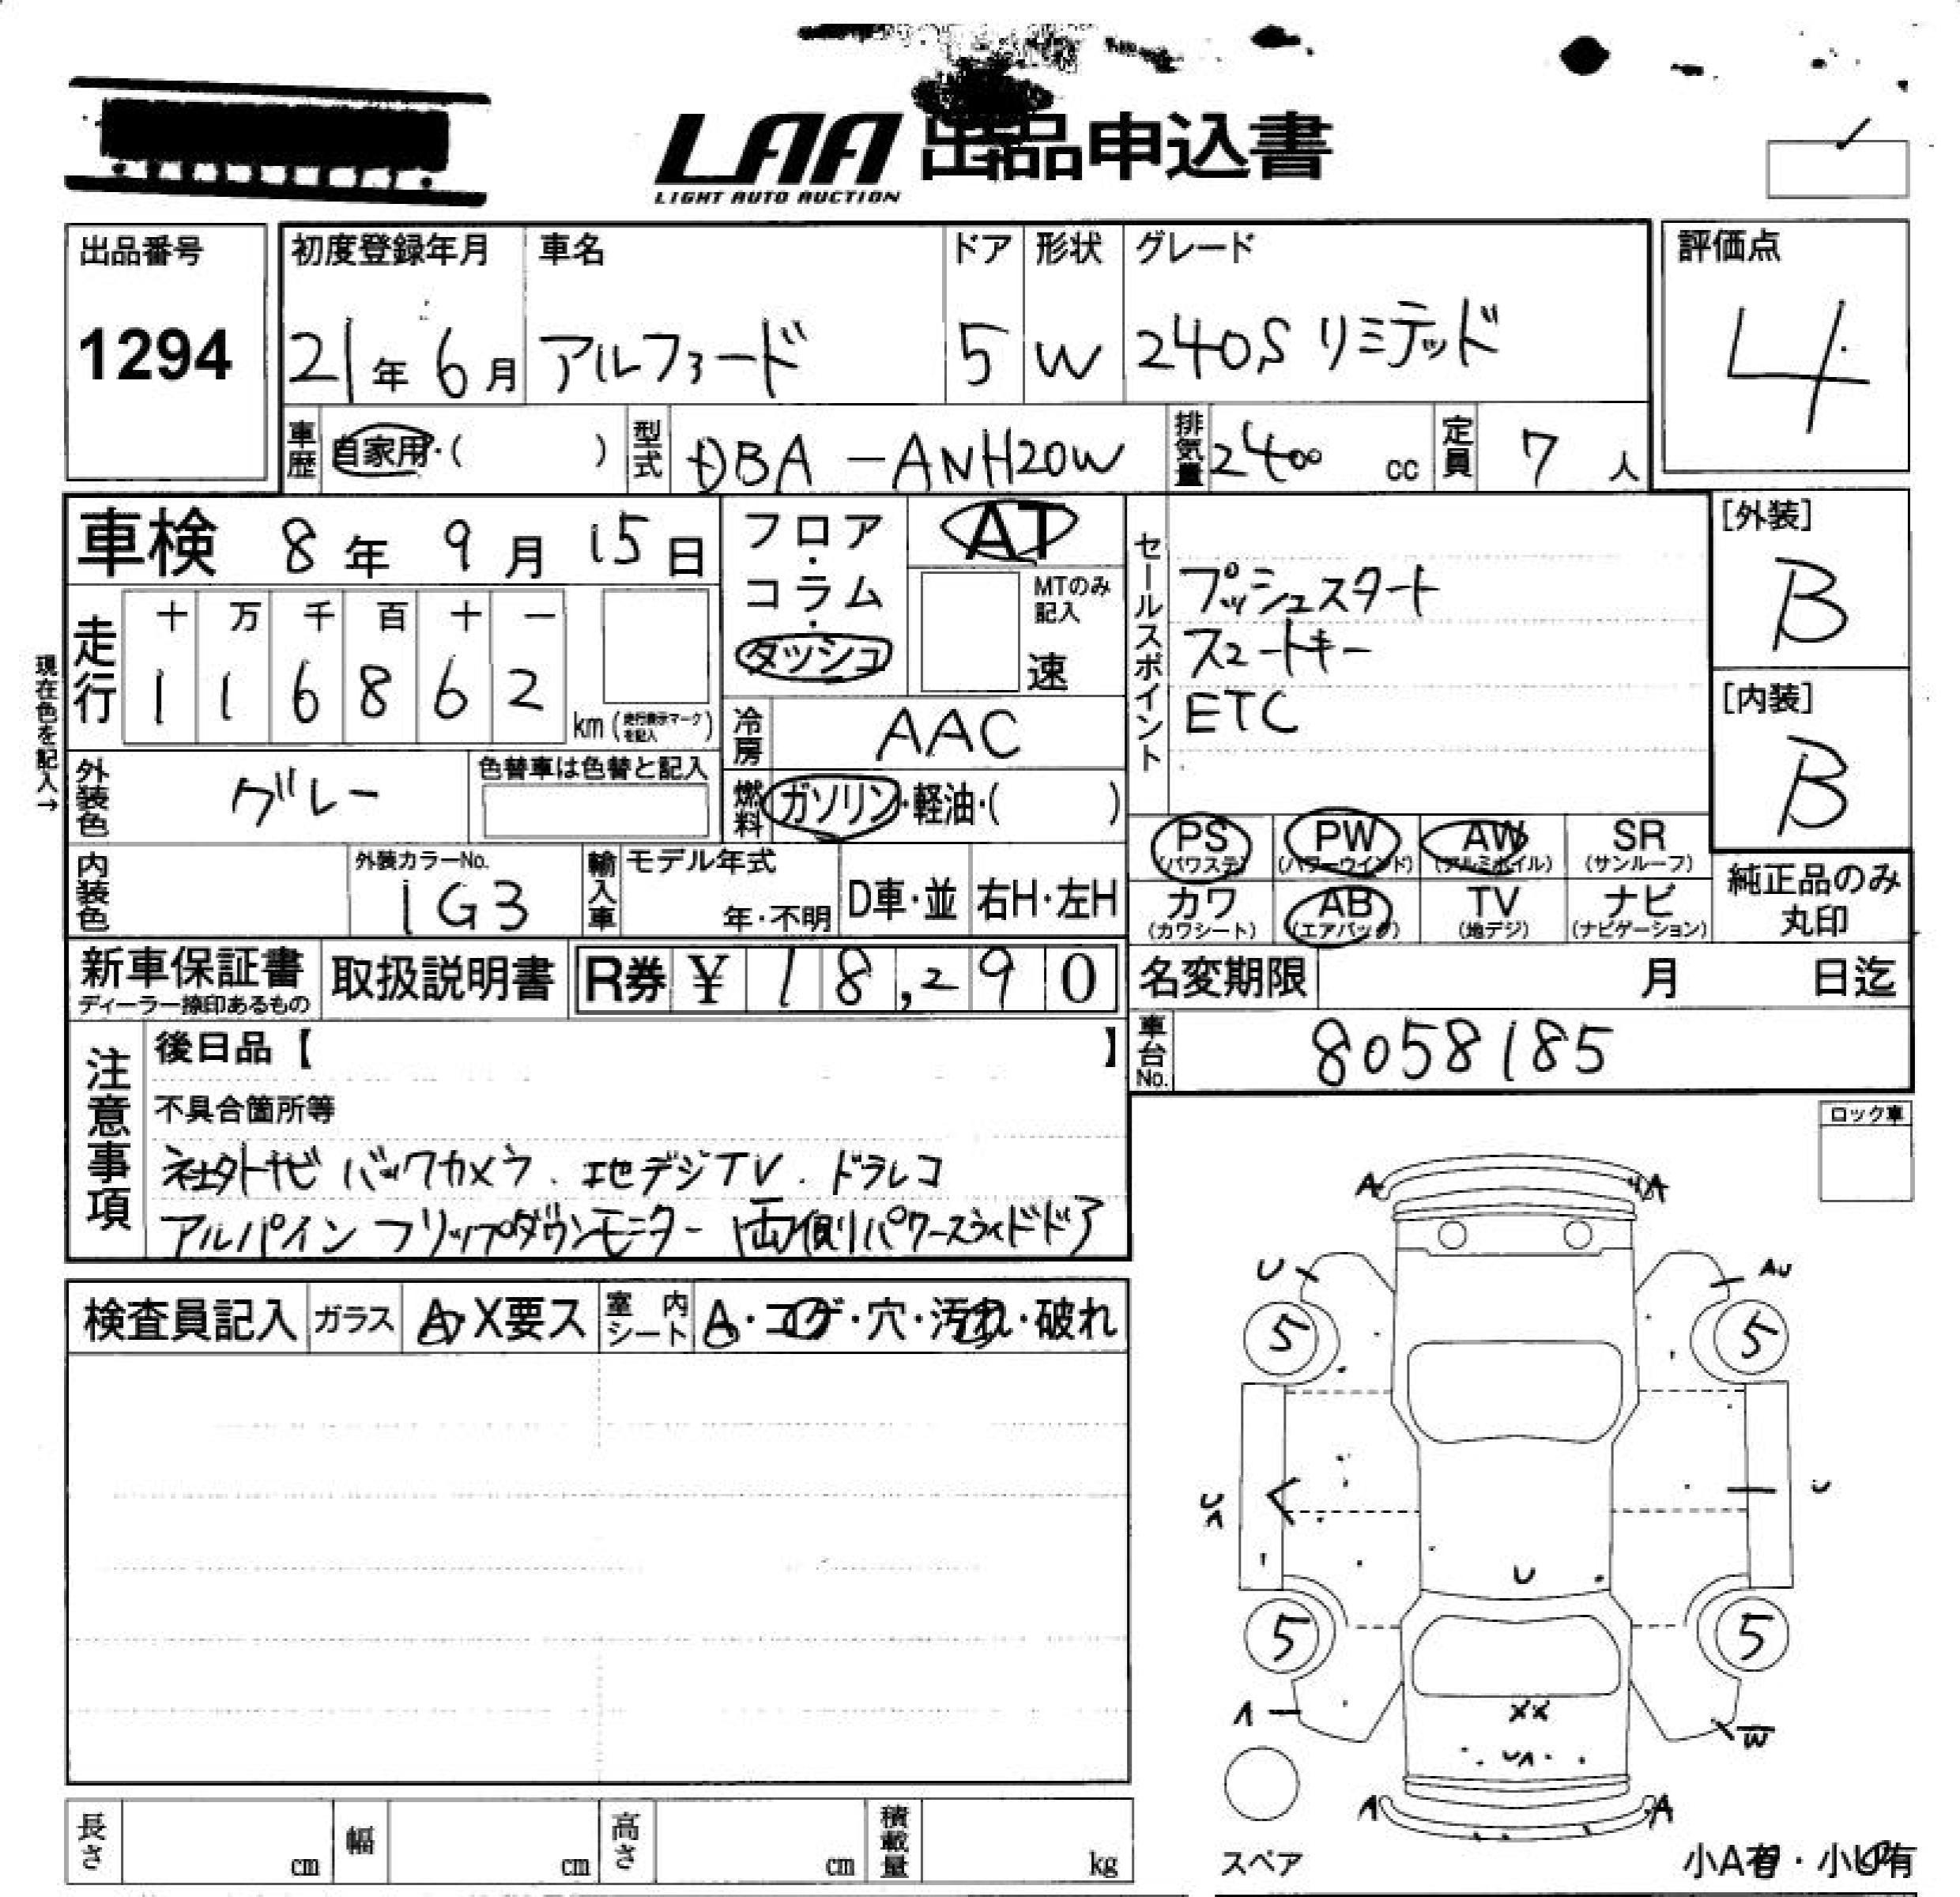 LAA 出品申込書
LIGHT AUTO AUCTION
出品番号
1294
初度登録年月
21年6月
車名
アルファード
ドア
5
形状
W
グレード
240S リミテッド
評価点
4
車歴 自家用・( )
型式 DBA-ANH20W
排気量 2400 cc
定員 7 人
車検 8年9月15日
フロア・コラム・ダッシュ
AT
MTのみ記入
速
セールスポイント
プッシュスタート
スマートキー
ETC
[外装]
B
[内装]
B
現在色を記入→
走行
十 万 千 百 十 一
1 1 6 8 6 2
km (走行表示マークを記入)
冷房 AAC
外装色 グレー
色替車は色替と記入
燃料 ガソリン・軽油・( )
PS (パワステ)
PW (パワーウインド)
AW (アルミホイル)
SR (サンルーフ)
カワ (カワシート)
AB (エアバック)
TV (地デジ)
ナビ (ナビゲーション)
純正品のみ丸印
内装色
外装カラーNo.
1G3
輸入車
モデル年式
年・不明
D車・並
右H・左H
新車保証書
ディーラー捺印あるもの
取扱説明書
R券 ¥ 18,290
名変期限 月 日迄
車台No. 8058185
注意事項
後日品【 】
不具合箇所等
社外ナビ バックカメラ. 地デジTV. ドラレコ
アルパイン フリップダウンモニター 両側パワースライドドア
ロック車
検査員記入
ガラス
A・X要ス
室内シート
A・コゲ・穴・汚れ・破れ
A A
U AU
5 5
U
U
5 5
W
XX
A A
スペア
小A有・小U有
長さ cm
幅 cm
高さ cm
積載量 kg